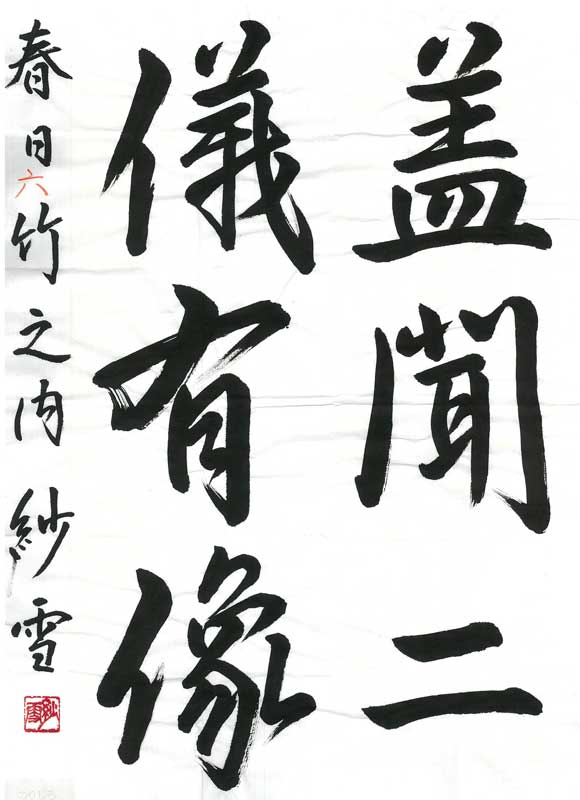 盖聞二
儀有像
春日六竹之内紗雪